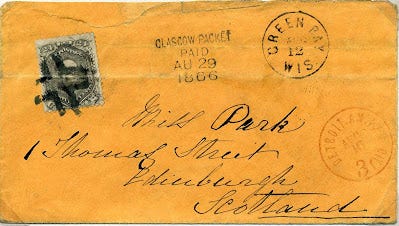 GLASGOW PACKET
PAID
AU 29
1866
GREEN BAY
12
WIS
Miss Park
1 Thomas Street
Edinburgh
Scotland
DETROIT
3